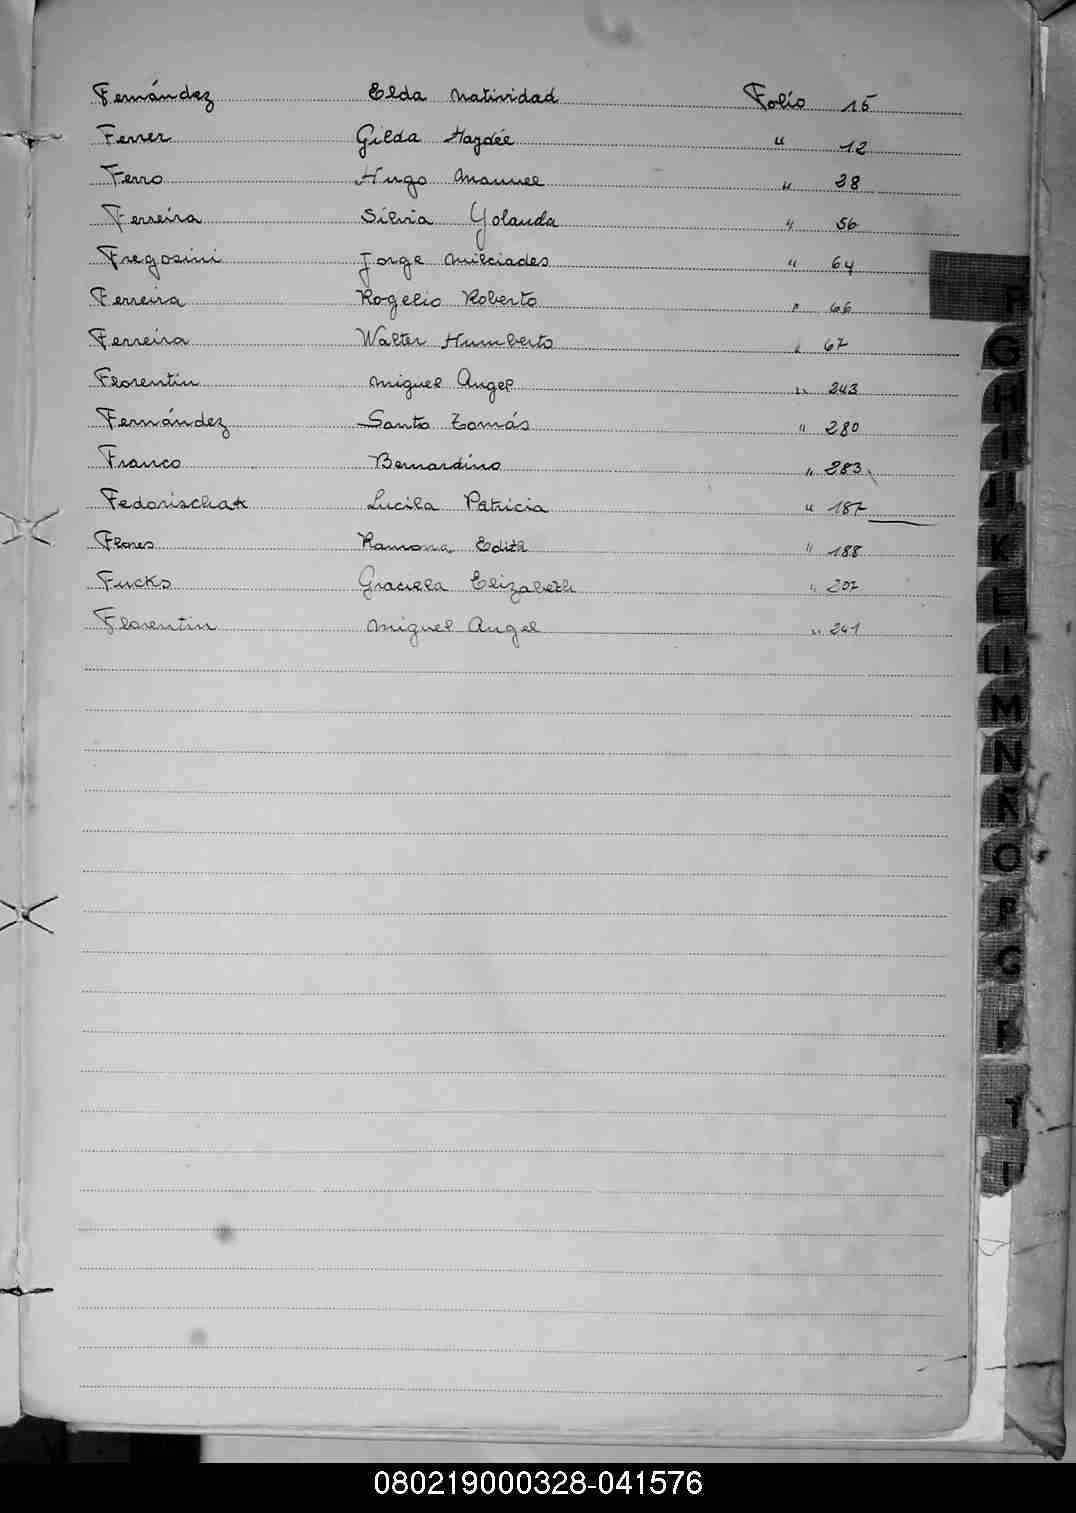 Fernández Elda Natividad Folio 15
Ferrer Gilda Haydée " 12
Ferro Hugo Manuel " 38
Ferreira Silvia Yolanda " 56
Fregosini Jorge Milciades " 64
Ferreira Rogelio Roberto " 66
Ferreira Walter Humberto " 67
Florentín Miguel Angel " 243
Fernández Santo Tomás " 280
Franco Bernardino " 283
Fedorischak Lucila Patricia " 187
Flores Ramona Edith " 188
Fucks Graciela Elizabeth " 207
Florentin Miguel Angel " 241
G
H
I
J
K
L
M
N
Ñ
O
P
T
080219000328-041576